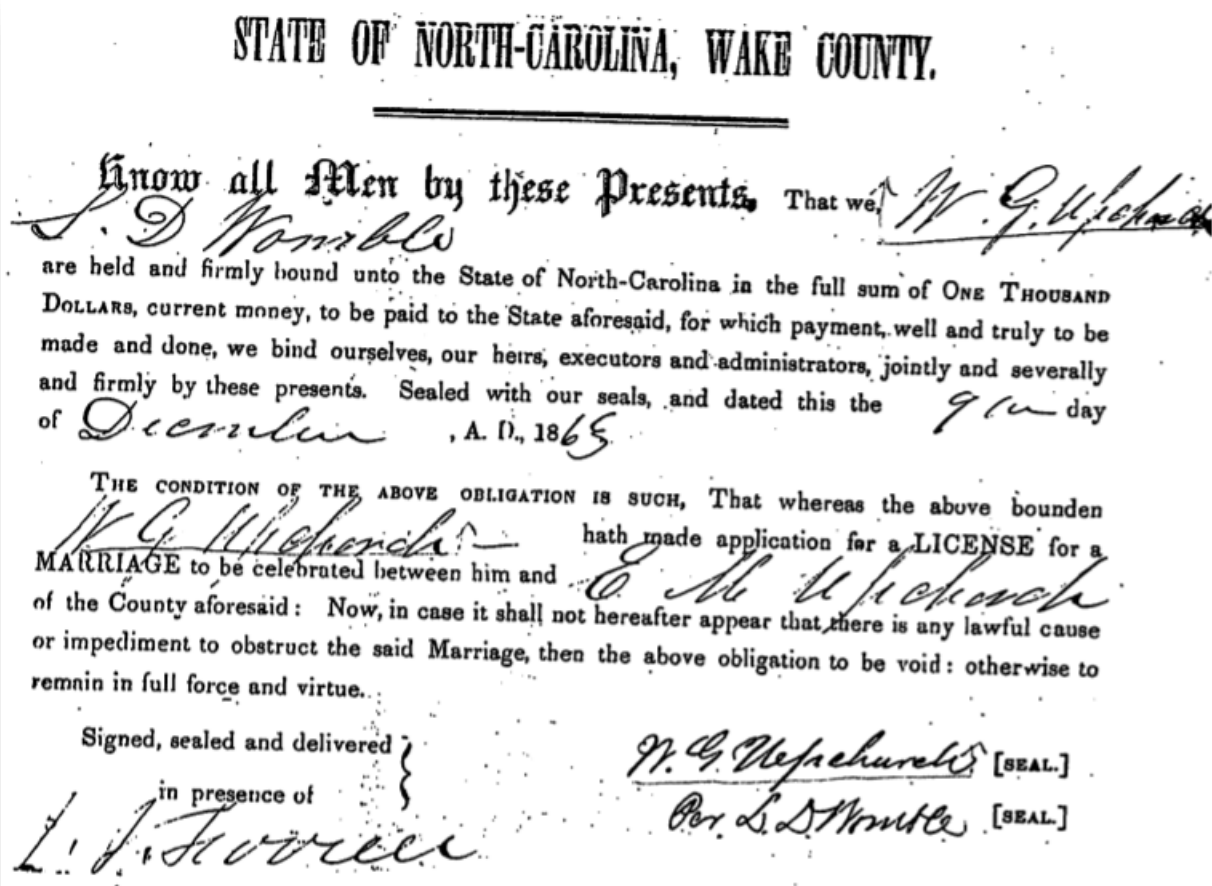 STATE OF NORTH-CAROLINA, WAKE COUNTY.
Know all Men by these Presents, That we, W. G. Upchurch
L. D Womble
are held and firmly bound unto the State of North-Carolina in the full sum of ONE THOUSAND
DOLLARS, current money, to be paid to the State aforesaid, for which payment, well and truly to be
made and done, we bind ourselves, our heirs, executors and administrators, jointly and severally
and firmly by these presents. Sealed with our seals, and dated this the 9th day
of December , A. D., 186
THE CONDITION OF THE ABOVE OBLIGATION IS SUCH, That whereas the above bounden
W G Upchurch hath made application for a LICENSE for a
MARRIAGE to be celebrated between him and E M Upchurch
of the County aforesaid: Now, in case it shall not hereafter appear that there is any lawful cause
or impediment to obstruct the said Marriage, then the above obligation to be void: otherwise to
remain in full force and virtue.
Signed, sealed and delivered W. G. Upchurch [SEAL.]
in presence of Per. L. D Womble [SEAL.]
L. J.